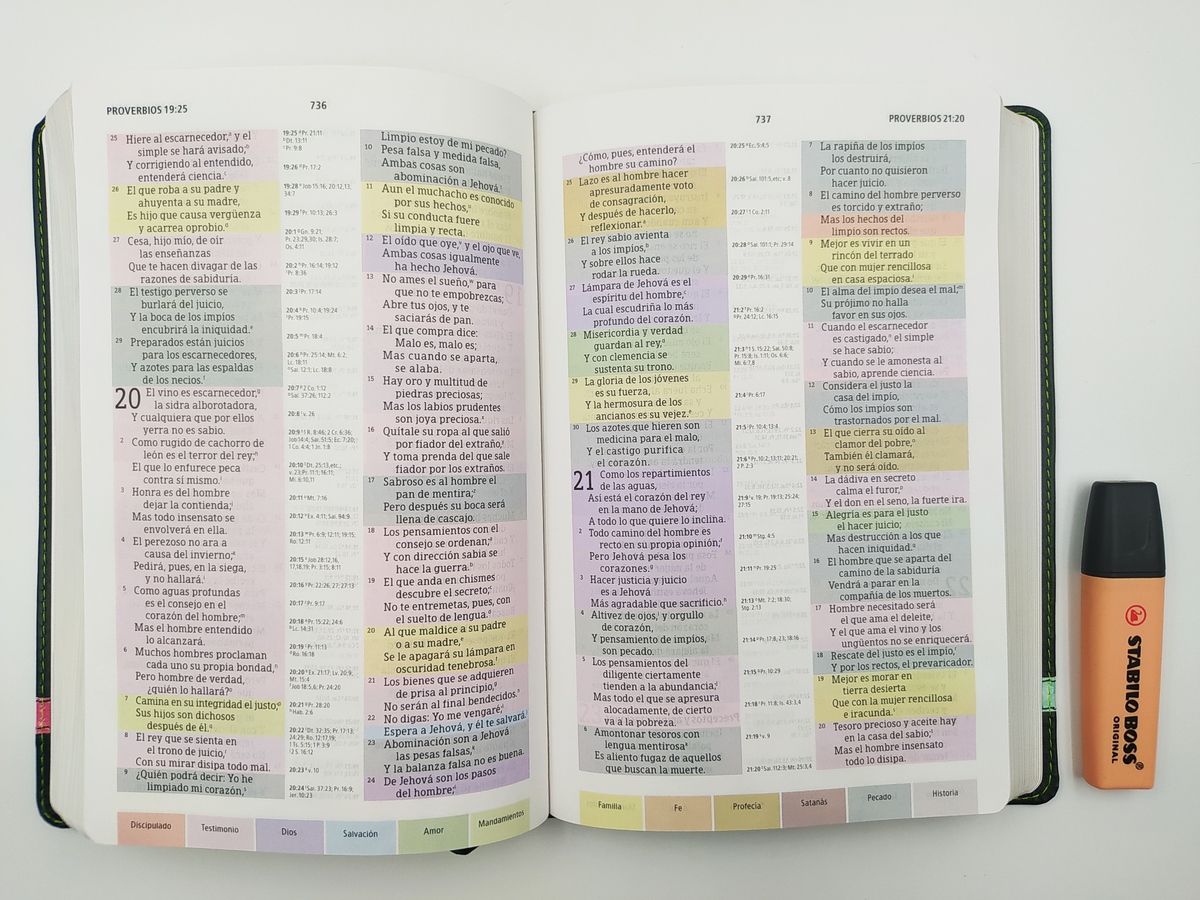 PROVERBIOS 19:25
736
25 Hiere al escarnecedor, y el
simple se hará avisado;
Y corrigiendo al entendido,
entenderá ciencia.
26 El que roba a su padre y
ahuyenta a su madre,
Es hijo que causa vergüenza
y acarrea oprobio.
27 Cesa, hijo mío, de oír
las enseñanzas
Que te hacen divagar de las
razones de sabiduría.
28 El testigo perverso se
burlará del juicio,
Y la boca de los impíos
encubrirá la iniquidad.
29 Preparados están juicios
para los escarnecedores,
Y azotes para las espaldas
de los necios.
20 El vino es escarnecedor,
la sidra alborotadora,
Y cualquiera que por ellos
yerra no es sabio.
2 Como rugido de cachorro de
león es el terror del rey;
El que lo enfurece peca
contra sí mismo.
3 Honra es del hombre
dejar la contienda;
Mas todo insensato se
envolverá en ella.
4 El perezoso no ara a
causa del invierno;
Pedirá, pues, en la siega,
y no hallará.
5 Como aguas profundas
es el consejo en el
corazón del hombre;
Mas el hombre entendido
lo alcanzará.
6 Muchos hombres proclaman
cada uno su propia bondad,
Pero hombre de verdad,
¿quién lo hallará?
7 Camina en su integridad el justo;
Sus hijos son dichosos
después de él.
8 El rey que se sienta en
el trono de juicio,
Con su mirar disipa todo mal.
9 ¿Quién podrá decir: Yo he
limpiado mi corazón,
19:25 Pr. 21:11
Dt. 13:11
Pr. 9:8
19:26 Pr. 17:2
19:28 Job 15:16; 20:12,13;
34:7
19:29 Pr. 10:13; 26:3
20:1 Gn. 9:21;
Pr. 23:29,30; Is. 28:7;
Os. 4:11
20:2 Pr. 16:14; 19:12
Pr. 8:36
20:3 Pr. 17:14
20:4 Pr. 10:4; 19:24
Pr. 19:15
20:5 Pr. 18:4
20:6 Pr. 25:14; Mt. 6:2;
Lc. 18:11
Sal. 12:1; Lc. 18:8
20:7 2 Co. 1:12
Sal. 37:26; 112:2
20:8 v. 26
20:9 1 R. 8:46; 2 Cr. 6:36;
Job 14:4; Sal. 51:5; Ec. 7:20;
1 Co. 4:4; 1 Jn. 1:8
20:10 Dt. 25:13, etc.;
v. 23; Pr. 11:1; 16:11;
Mi. 6:10,11
20:11 Mt. 7:16
20:12 Ex. 4:11; Sal. 94:9
20:13 Pr. 6:9; 12:11; 19:15;
Ro. 12:11
20:15 Job 28:12,16,
17,18,19; Pr. 3:15; 8:11
20:16 Pr. 22:26, 27; 27:13
20:17 Pr. 9:17
20:18 Pr. 15:22; 24:6
Lc. 14:31
20:19 Pr. 11:13
Ro. 16:18
20:20 Ex. 21:17; Lv. 20:9;
Mt. 15:4
Job 18:5,6; Pr. 24:20
20:21 Pr. 28:20
Hab. 2:6
20:22 Dt. 32:35; Pr. 17:13;
24:29; Ro. 12:17,19;
1 Ts. 5:15; 1 P. 3:9
2 S. 16:12
20:23 v. 10
20:24 Sal. 37:23; Pr. 16:9;
Jer. 10:23
Limpio estoy de mi pecado?
10 Pesa falsa y medida falsa,
Ambas cosas son
abominación a Jehová.
11 Aun el muchacho es conocido
por sus hechos,
Si su conducta fuere
limpia y recta.
12 El oído que oye, y el ojo que ve,
Ambas cosas igualmente
ha hecho Jehová.
13 No ames el sueño, para
que no te empobrezcas;
Abre tus ojos, y te
saciarás de pan.
14 El que compra dice:
Malo es, malo es;
Mas cuando se aparta,
se alaba.
15 Hay oro y multitud de
piedras preciosas;
Mas los labios prudentes
son joya preciosa.
16 Quítale su ropa al que salió
por fiador del extraño,
Y toma prenda del que sale
fiador por los extraños.
17 Sabroso es al hombre el
pan de mentira;
Pero después su boca será
llena de cascajo.
18 Los pensamientos con el
consejo se ordenan;
Y con dirección sabia se
hace la guerra.
19 El que anda en chismes
descubre el secreto;
No te entremetas, pues, con
el suelto de lengua.
20 Al que maldice a su padre
o a su madre,
Se le apagará su lámpara en
oscuridad tenebrosa.
21 Los bienes que se adquieren
de prisa al principio,
No serán al final bendecidos.
22 No digas: Yo me vengaré;
Espera a Jehová, y él te salvará.
23 Abominación son a Jehová
las pesas falsas,
Y la balanza falsa no es buena.
24 De Jehová son los pasos
del hombre;
Discipulado
Testimonio
Dios
Salvación
Amor
Mandamientos
737
PROVERBIOS 21:20
¿Cómo, pues, entenderá el
hombre su camino?
25 Lazo es al hombre hacer
apresuradamente voto
de consagración,
Y después de hacerlo,
reflexionar.
26 El rey sabio avienta
a los impíos,
Y sobre ellos hace
rodar la rueda.
27 Lámpara de Jehová es el
espíritu del hombre,
La cual escudriña lo más
profundo del corazón.
28 Misericordia y verdad
guardan al rey,
Y con clemencia se
sustenta su trono.
29 La gloria de los jóvenes
es su fuerza,
Y la hermosura de los
ancianos es su vejez.
30 Los azotes que hieren son
medicina para el malo,
Y el castigo purifica
el corazón.
21 Como los repartimientos
de las aguas,
Así está el corazón del rey
en la mano de Jehová;
A todo lo que quiere lo inclina.
2 Todo camino del hombre es
recto en su propia opinión;
Pero Jehová pesa los
corazones.
3 Hacer justicia y juicio
es a Jehová
Más agradable que sacrificio.
4 Altivez de ojos, y orgullo
de corazón,
Y pensamiento de impíos,
son pecado.
5 Los pensamientos del
diligente ciertamente
tienden a la abundancia;
Mas todo el que se apresura
alocadamente, de cierto
va a la pobreza.
6 Amontonar tesoros con
lengua mentirosa
Es aliento fugaz de aquellos
que buscan la muerte.
20:25 Ec. 5:4,5
20:26 Sal. 101:5, etc.; v. 8
20:27 1 Co. 2:11
20:28 Sal. 101:1; Pr. 29:14
20:29 Pr. 16:31
21:2 Pr. 16:2
Pr. 24:12; Lc. 16:15
21:3 1 S. 15:22; Sal. 50:8;
Pr. 15:8; Is. 1:11; Os. 6:6;
Mi. 6:7,8
21:4 Pr. 6:17
21:5 Pr. 10:4; 13:4
21:6 Pr. 10:2; 13:11; 20:21;
2 P. 2:3
21:9 v. 19; Pr. 19:13; 25:24;
27:15
21:10 Stg. 4:5
21:11 Pr. 19:25
21:13 Mt. 7:2; 18:30;
Stg. 2:13
21:14 Pr. 17:8, 23; 18:16
21:15 Pr. 10:29
21:18 Pr. 11:8; Is. 43:3,4
21:19 v. 9
21:20 Sal. 112:3; Mt. 25:3,4
7 La rapiña de los impíos
los destruirá,
Por cuanto no quisieron
hacer juicio.
8 El camino del hombre perverso
es torcido y extraño;
Mas los hechos del
limpio son rectos.
9 Mejor es vivir en un
rincón del terrado
Que con mujer rencillosa
en casa espaciosa.
10 El alma del impío desea el mal;
Su prójimo no halla
favor en sus ojos.
11 Cuando el escarnecedor
es castigado, el simple
se hace sabio;
Y cuando se le amonesta al
sabio, aprende ciencia.
12 Considera el justo la
casa del impío,
Cómo los impíos son
trastornados por el mal.
13 El que cierra su oído al
clamor del pobre,
También él clamará,
y no será oído.
14 La dádiva en secreto
calma el furor,
Y el don en el seno, la fuerte ira.
15 Alegría es para el justo
el hacer juicio;
Mas destrucción a los que
hacen iniquidad.
16 El hombre que se aparta del
camino de la sabiduría
Vendrá a parar en la
compañía de los muertos.
17 Hombre necesitado será
el que ama el deleite,
Y el que ama el vino y los
ungüentos no se enriquecerá.
18 Rescate del justo es el impío,
Y por los rectos, el prevaricador.
19 Mejor es morar en
tierra desierta
Que con la mujer rencillosa
e iracunda.
20 Tesoro precioso y aceite hay
en la casa del sabio;
Mas el hombre insensato
todo lo disipa.
Familia
Fe
Profecía
Satanás
Pecado
Historia
STABILO BOSS®
ORIGINAL